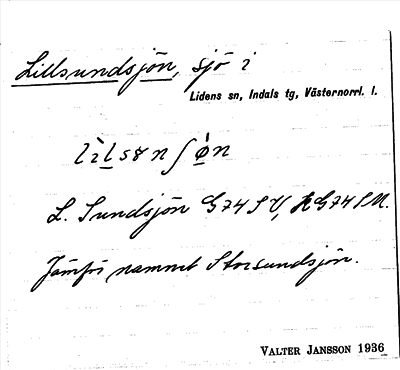 Lillsundsjön, sjö i
Lidens sn, Indals tg, Västernorrl. l.
L. Sundsjön G74SV, G74SU.
Jämför namnet Storsundsjön.
VALTER JANSSON 1936